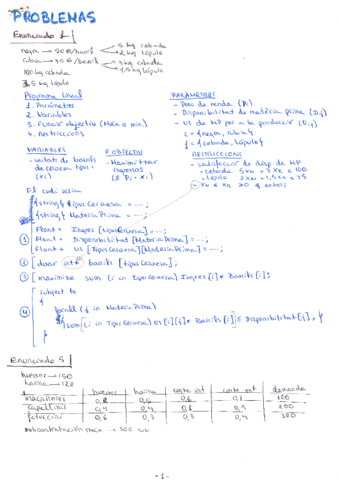 PROBLEMAS
Enunciado 1
negra → 90 €/barril 5 kg cebada
2 kg lúpulo
rubia → 30 €/barril 3 kg cebada
1,5 kg lúpulo
100 kg cebada
35 kg lúpulo
Programa lineal
1. Paràmetres
2. Variables
3. Funció objectiu (Màx o min)
4. Restriccions
PARÀMETRES
- Preu de venda (Pi)
- Disponibilitat de matèria prima (Dj)
- ús de MP per a la producció (Uij)
i = {negra, rubia}
j = {cebada, lúpulo}
VARIABLES
- quantitat de barrils de cervesa tipus i (Xi)
F. OBJECTIU
- Maximitzar ingresos (Σ Pi · Xi)
RESTRICCIONS
- satisfacció de disp. de MP
- cebada 5Xn + 3Xr ≤ 100
- lúpulo 2Xn + 1,5Xr ≤ 35
- Xn i Xr ≥ 0 i enters
El codi seria
{string} tipus Cervesa = ...;
{string} Materia Prima = ...;
1 Float + Ingres [tipus Cervesa] = ...;
Float + Disponibilitat [Materia Prima] = ...;
Float + Us [tipus Cervesa][Materia Prima] = ...;
2 dvar int+ barrils [tipus Cervesa];
3 maximize sum (i in tipus Cervesa) Ingres [i] * Barrils [i];
4 subject to
{
forall (j in Materia Prima)
sum (i in Tipus Cervesa) Us [i][j] * Barrils [i] ≤ Disponibilitat [j];
}
Enunciado 5
huevos → 150
harina → 120
huevos harina coste int coste ext demanda
macarrones 0,2 0,5 0,6 0,8 100
capellinis 0,4 0,4 0,8 0,9 200
fetuccini 0,6 0,3 0,3 0,4 300
- 1 -